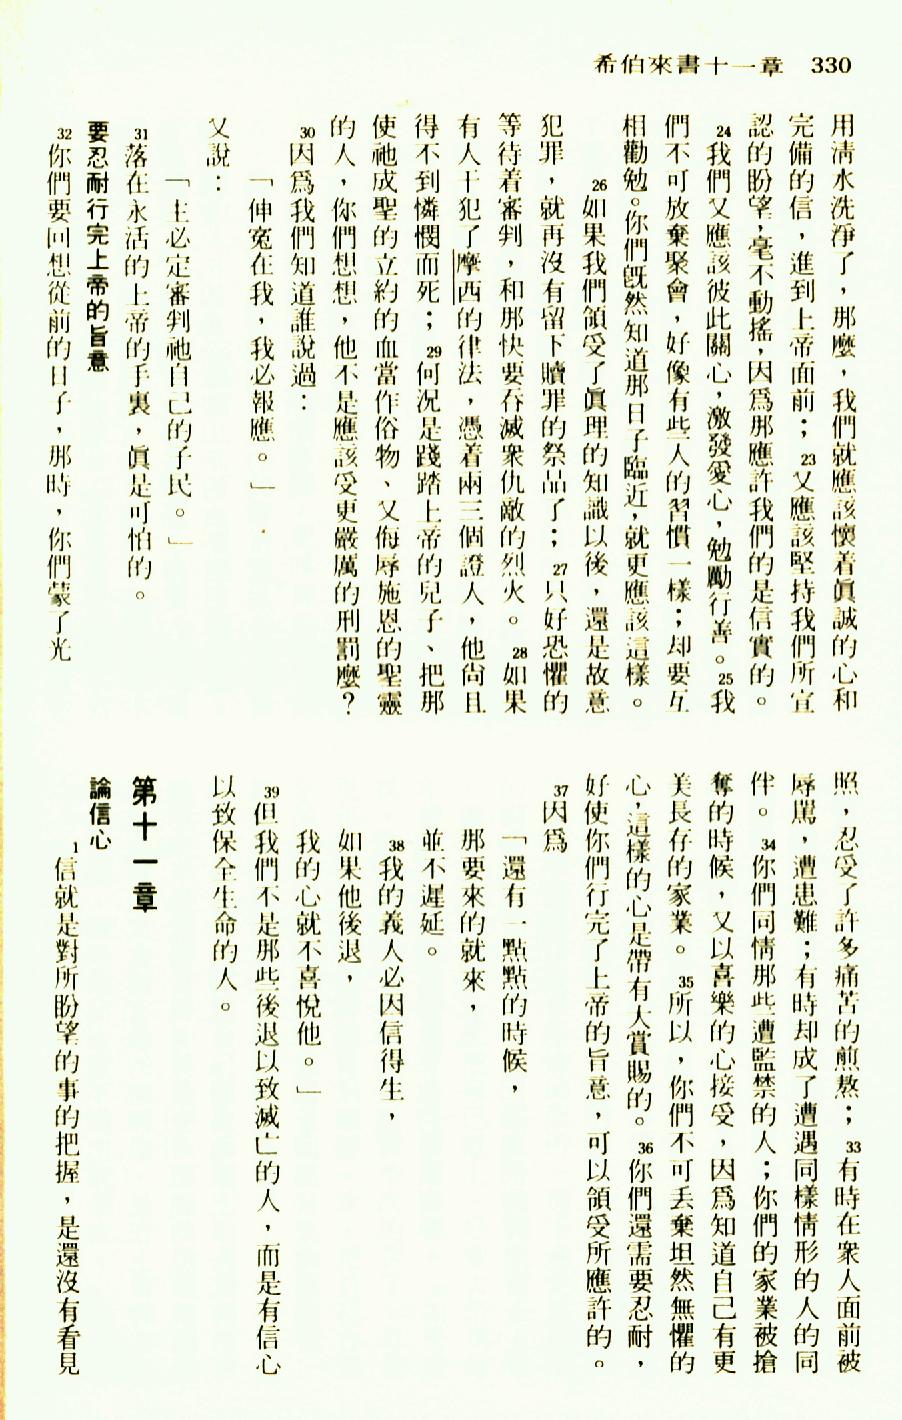 希伯來書十一章 330
用清水洗淨了，那麼，我們就應該懷着眞誠的心和
完備的信，進到上帝面前；23又應該堅持我們所宣
認的盼望，毫不動搖，因爲那應許我們的是信實的。
24我們又應該彼此關心，激發愛心，勉勵行善。25我
們不可放棄聚會，好像有些人的習慣一樣；却要互
相勸勉。你們旣然知道那日子臨近，就更應該這樣。
26如果我們領受了眞理的知識以後，還是故意
犯罪，就再沒有留下贖罪的祭品了；27只好恐懼的
等待着審判，和那快要吞滅衆仇敵的烈火。28如果
有人干犯了摩西的律法，憑着兩三個證人，他尙且
得不到憐憫而死；29何況是踐踏上帝的兒子、把那
使祂成聖的立約的血當作俗物、又侮辱施恩的聖靈
的人，你們想想，他不是應該受更嚴厲的刑罰麼？
30因爲我們知道誰說過：
「伸寃在我，我必報應。」
又說：
「主必定審判祂自己的子民。」
31落在永活的上帝的手裏，眞是可怕的。
要忍耐行完上帝的旨意
32你們要回想從前的日子，那時，你們蒙了光
照，忍受了許多痛苦的煎熬；33有時在衆人面前被
辱駡，遭患難；有時却成了遭遇同樣情形的人的同
伴。34你們同情那些遭監禁的人；你們的家業被搶
奪的時候，又以喜樂的心接受，因爲知道自己有更
美長存的家業。35所以，你們不可丟棄坦然無懼的
心，這樣的心是帶有大賞賜的。36你們還需要忍耐，
好使你們行完了上帝的旨意，可以領受所應許的。
37因爲
「還有一點點的時候，
那要來的就來，
並不遲延。
38我的義人必因信得生，
如果他後退，
我的心就不喜悅他。」
39但我們不是那些後退以致滅亡的人，而是有信心
以致保全生命的人。
第十一章
論信心
1信就是對所盼望的事的把握，是還沒有看見